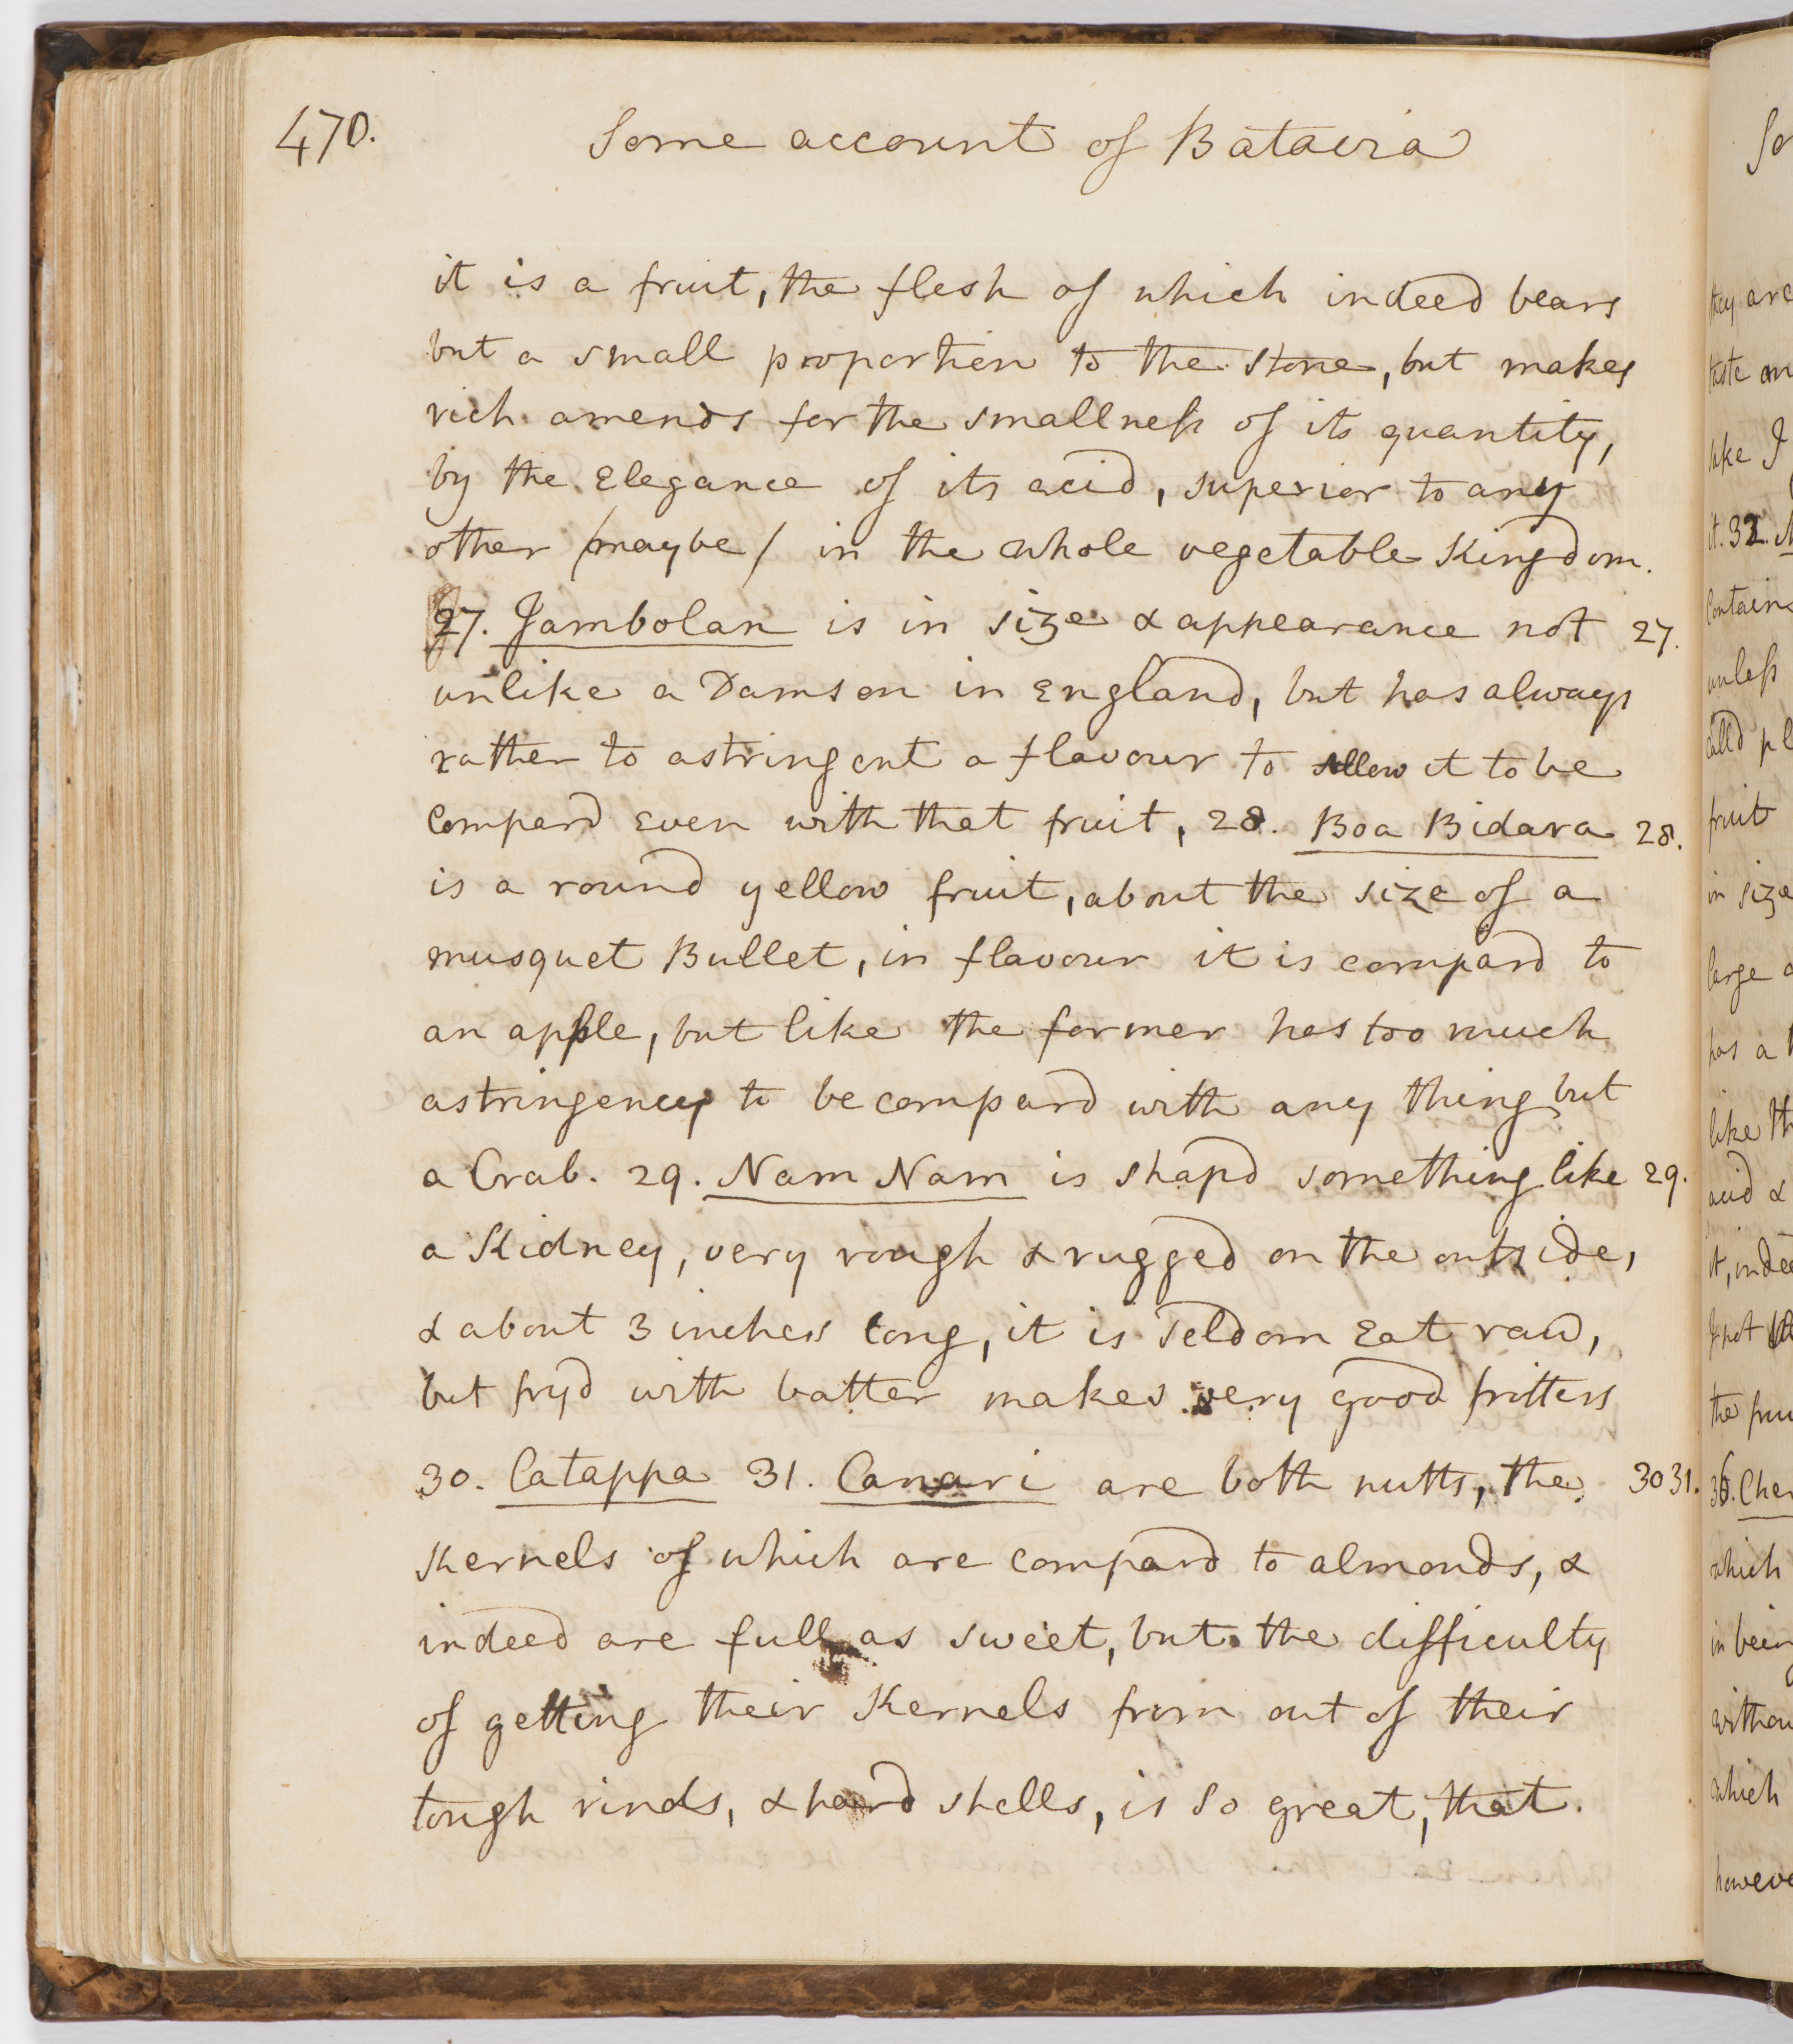 470.
Some account of Batavia
it is a fruit, the flesh of which indeed bears
but a small proportion to the stone, but makes
rich amends for the smallness of its quantity,
by the Elegance of its acid, superior to any
other /maybe/ in the whole vegetable Kingdom.
27. Jambolan is in size & appearance not 27.
unlike a Damson in England, but has always
rather to astringent a flavour to allow it to be
compard Even with that fruit, 28. Boa Bidara 28.
is a round yellow fruit, about the size of a
musquet Bullet, in flavour it is compard to
an apple, but like the former has too much
astringency to be compard with any thing but
a Crab. 29. Nam Nam is shapd something like 29.
a Kidney, very rough & rugged on the outside,
& about 3 inches long, it is Seldom Eat raw,
but fryd with batter makes very good fritters
30. Catappa 31. Canari are both nutts, the 30 31.
Kernels of which are compard to almonds, &
indeed are full as sweet, but the difficulty
of getting their Kernels from out of their
tough rinds, & hard shells, is so great, that.
So
they are
taste
take I
it. 32.
Contain
unless
calld
fruit
in size
large
has a
like
acid &
it,
the
36. Cher
which
in
which